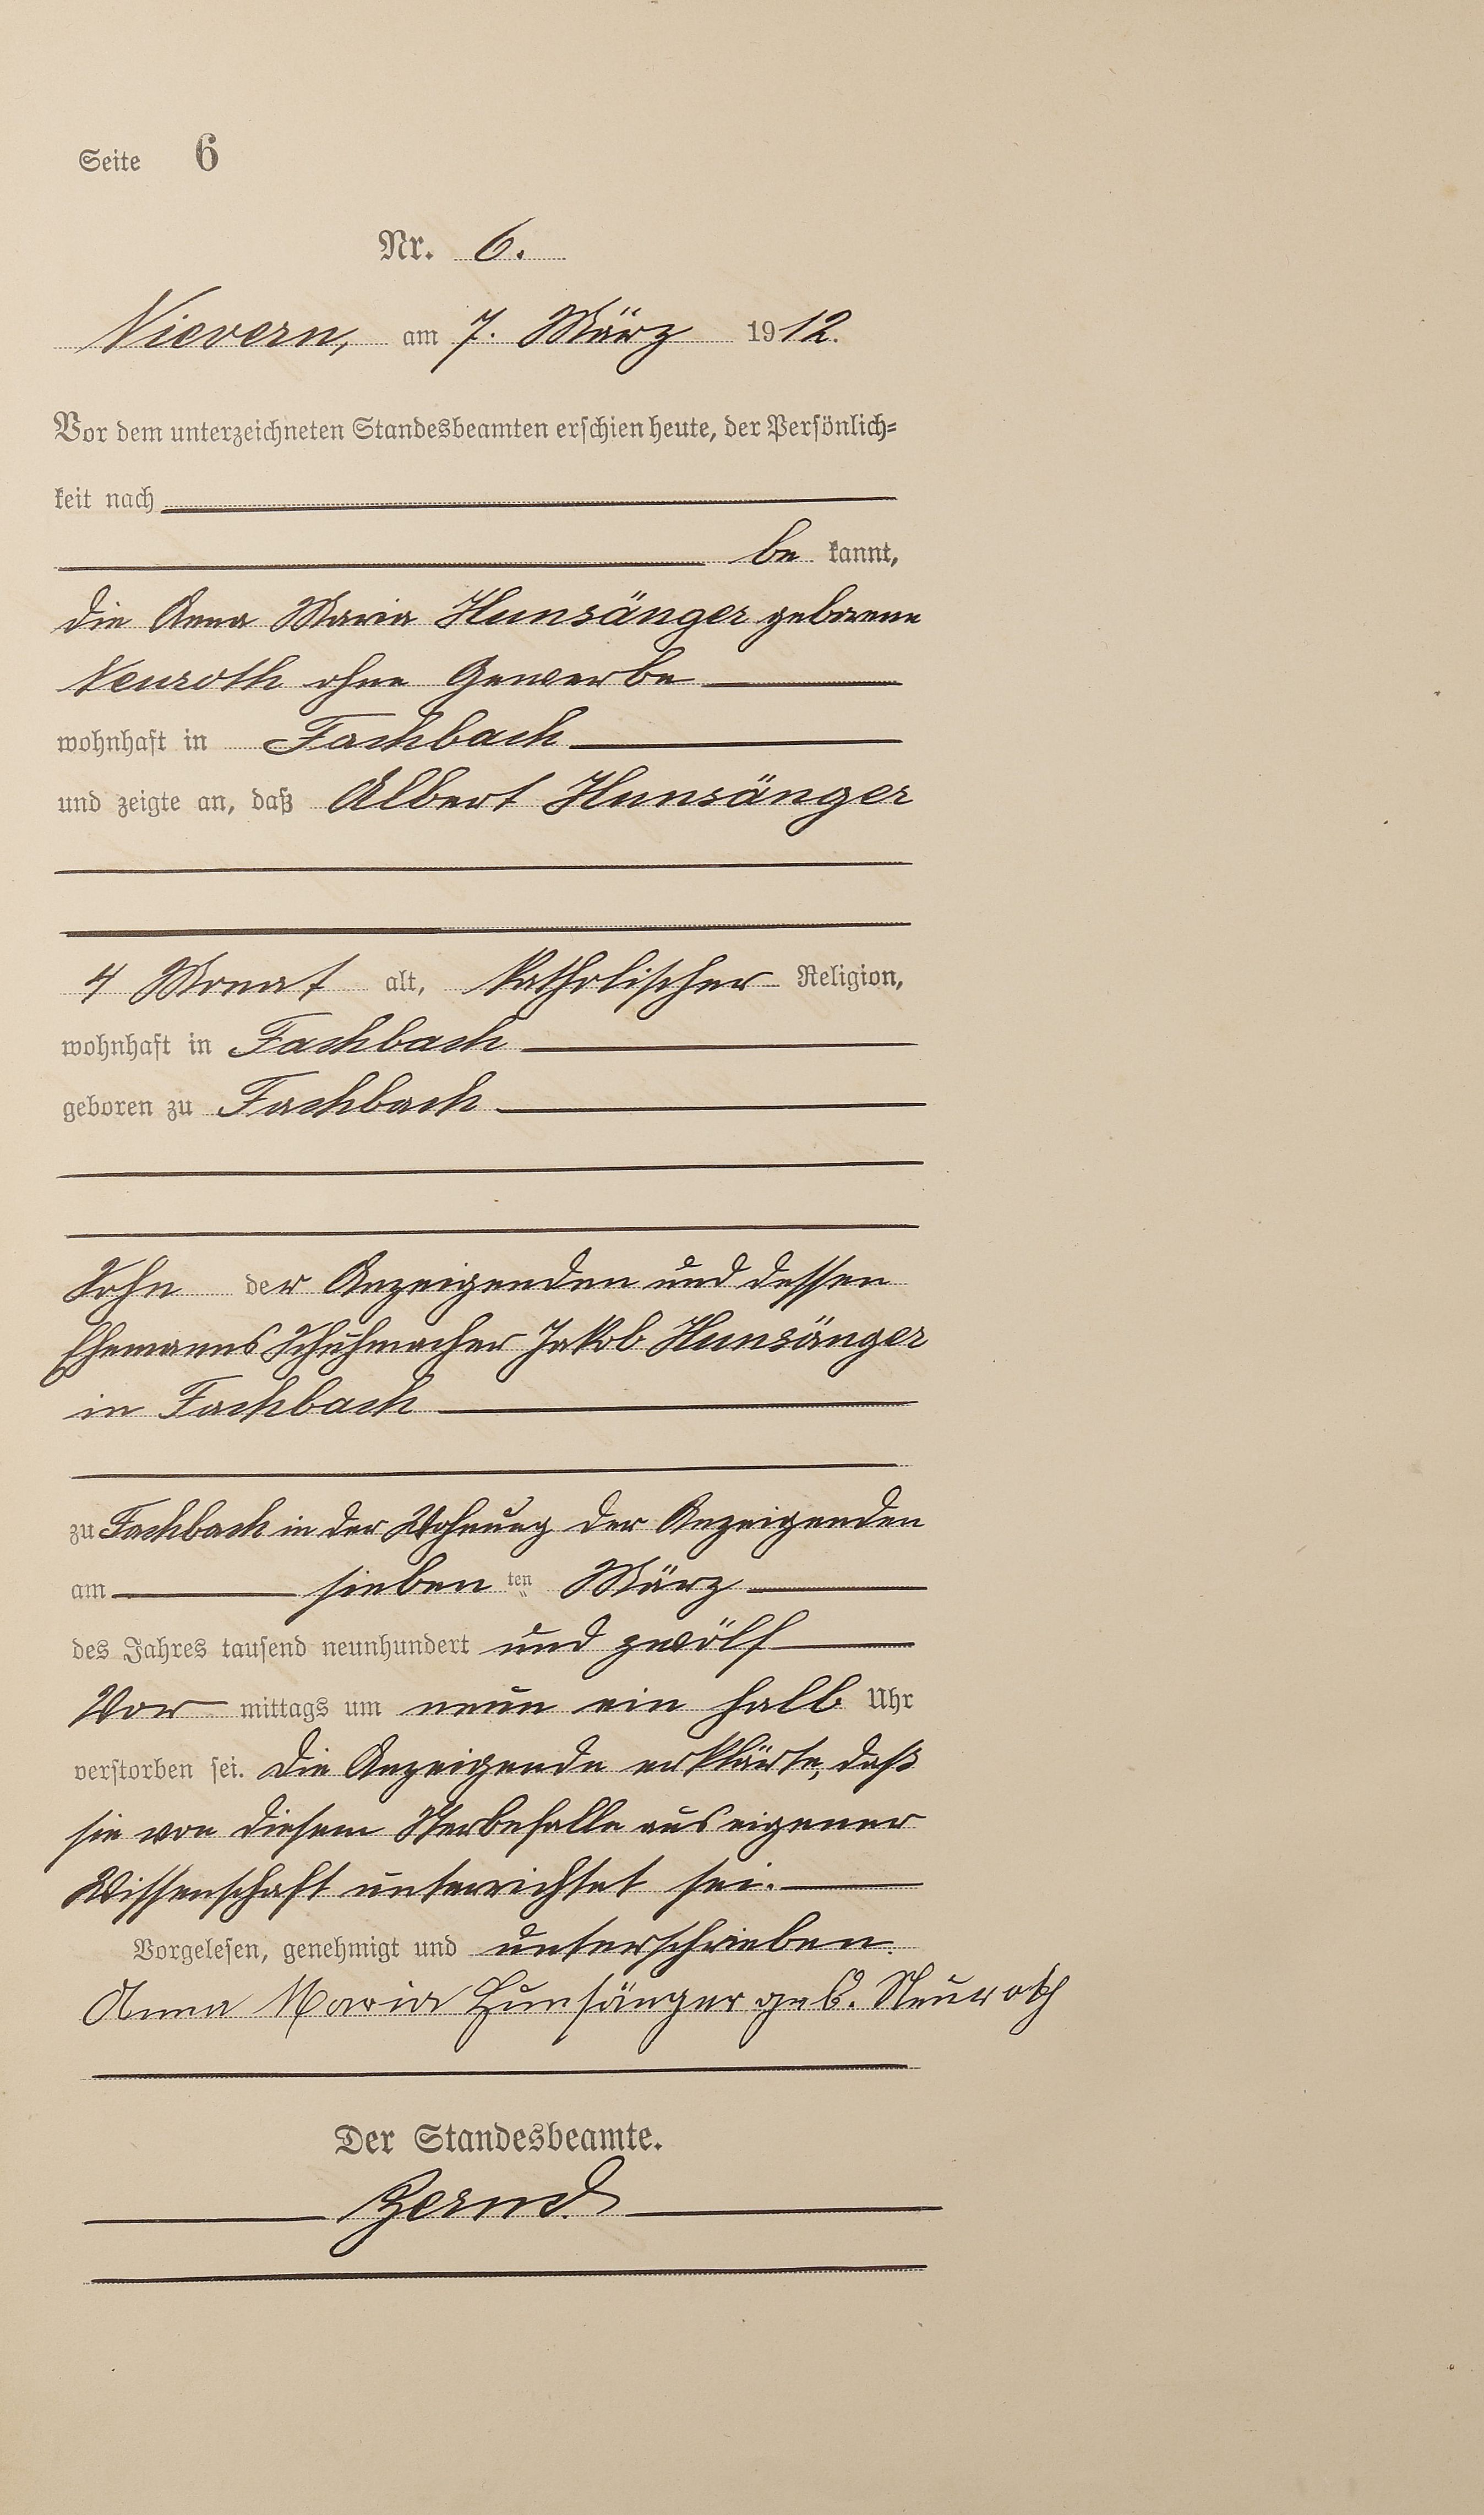 Seite 6
Nr. 6.
Nievern, am 7. März 1912.
Vor dem unterzeichneten Standesbeamten erschien heute, der Persönlich=
keit nach
be kannt,
die Anna Maria Hunsänger geborene
Neuroth ohne Gewerbe
wohnhaft in Fachbach
und zeigte an, daß Albert Hunsänger
4 Monat alt, katholischer Religion,
wohnhaft in Fachbach
geboren zu Fachbach
Sohn der Anzeigenden und dessen
Ehemanns Schuhmacher Jakob Hunsänger
in Fachbach
zu Fachbach in der Wohnung der Anzeigenden
am sieben ten März
des Jahres tausend neunhundert und zwölf
Vor mittags um neun ein halb Uhr
verstorben sei. Die Anzeigende erklärte, daß
sie von diesem Sterbefalle aus eigener
Wissenschaft unterrichtet sei.
Vorgelesen, genehmigt und unterschrieben.
Anna Maria Hunsänger geb. Neuroth
Der Standesbeamte.